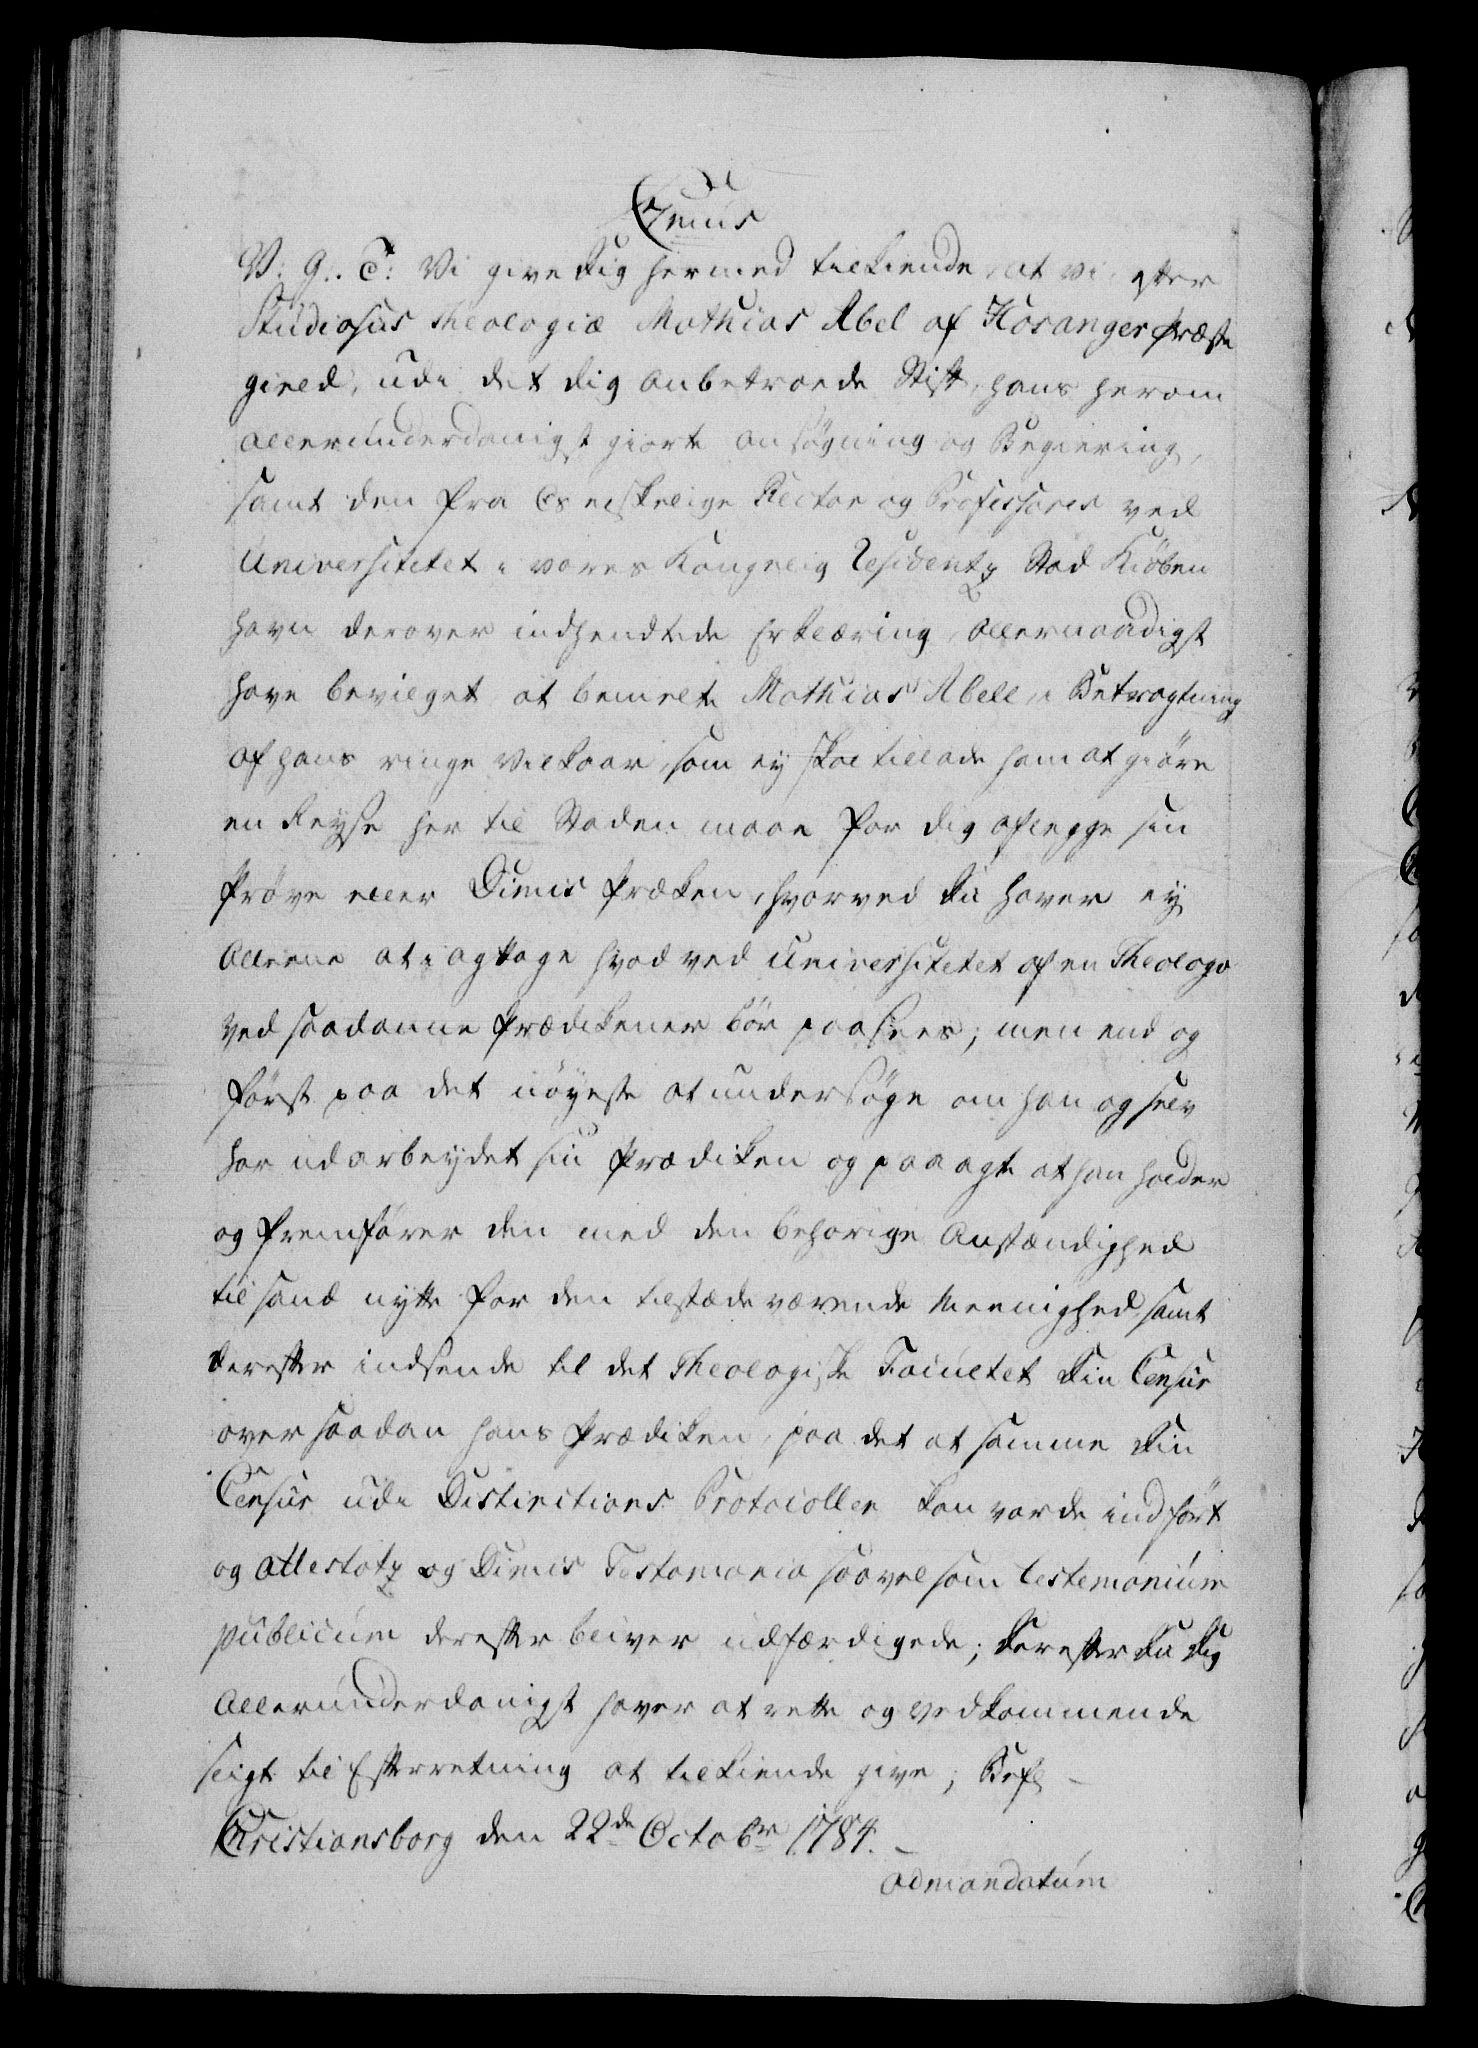 V: G: T: Vi give Dig hermed tilkiende, at vi, efter
Studiosus Theologiæ Mathias Abel af Hosanger Præste
gield, udi det dig anbetroede Stift, hans herom
allerunderdanigst giorte ansøgning og Begiering,
samt den fra Os elskelige Rector og Professores ved
Universitetet i vores Kongelig Residentz Stad Kiøben
havn derover indhendtede Erklæring, allernaadigst
have bevilget at bemelte Mathias Abell, i Betragtning
af hans ringe Vilkaar, som ey skal tillade ham at giøre
en Reyse her til Staden maae for dig aflegge sin
Prøve eller Dimis Præken, hvorved Du haver ey
alleene at iagttage hvad ved Universitetet af en Theologo
ved saadanne Prædikener bör paasees; men end og
först paa det nöyeste at undersöge om han og selv
har udarbeydet sin Prædiken og paaagte at han holder
og fremförer den med den behörige Anstændighed
til sand nytte for den tilstædeværende Meenighed, samt
derefter indsende til det Theologiske Facultet Din Censur
over saadan hans Prædiken, paa det at samme Din
Censur udi Distinctions Protocollen kan vorde indfört
og attestatz og Dimis Testamonia saavelsom testemonium
publicum derefter bliver udfærdigede; Derefter Du Dig
allerunderdanigst haver at rette og vedkommende
sligt til Efterretning at tilkiende give; Befl
Christiansborg den 22de Octobr 1784.
ad mandatum